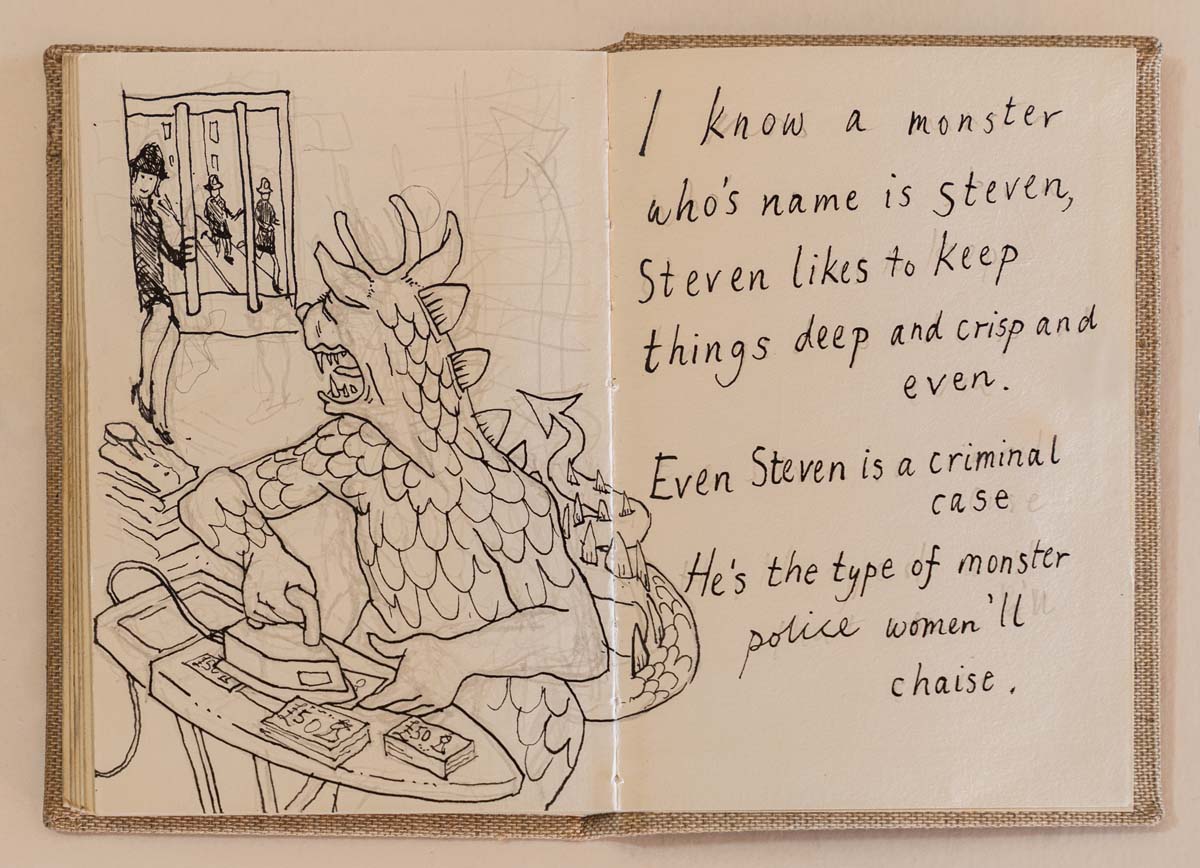 I know a monster
who's name is Steven,
Steven likes to keep
things deep and crisp and
even.
Even Steven is a criminal
case
He's the type of monster
police women'll
chaise.
£50
£50
£50